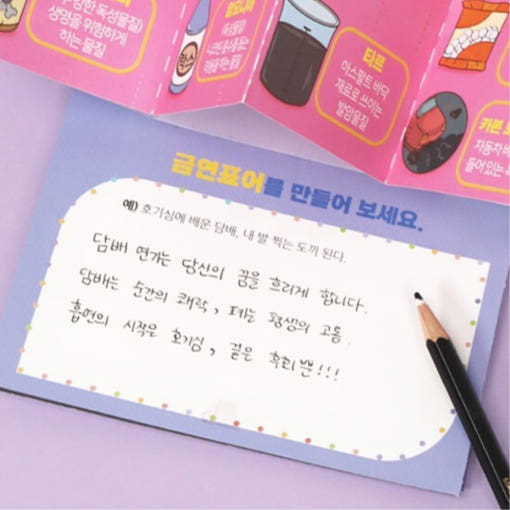 (무향한 독성물질)
생명을 위험하게
하는 물질
락스
타르
아스팔트 바닥
재료로 쓰이는
발암물질
카본
자동차
들어있는
금연표어를 만들어 보세요.
예) 호기심에 배운 담배, 내 발 찍는 도끼 된다.
담배 연기는 당신의 꿈을 흐리게 합니다.
담배는 순간의 쾌락, 폐는 평생의 고통.
흡연의 시작은 호기심, 끝은 후회뿐!!!